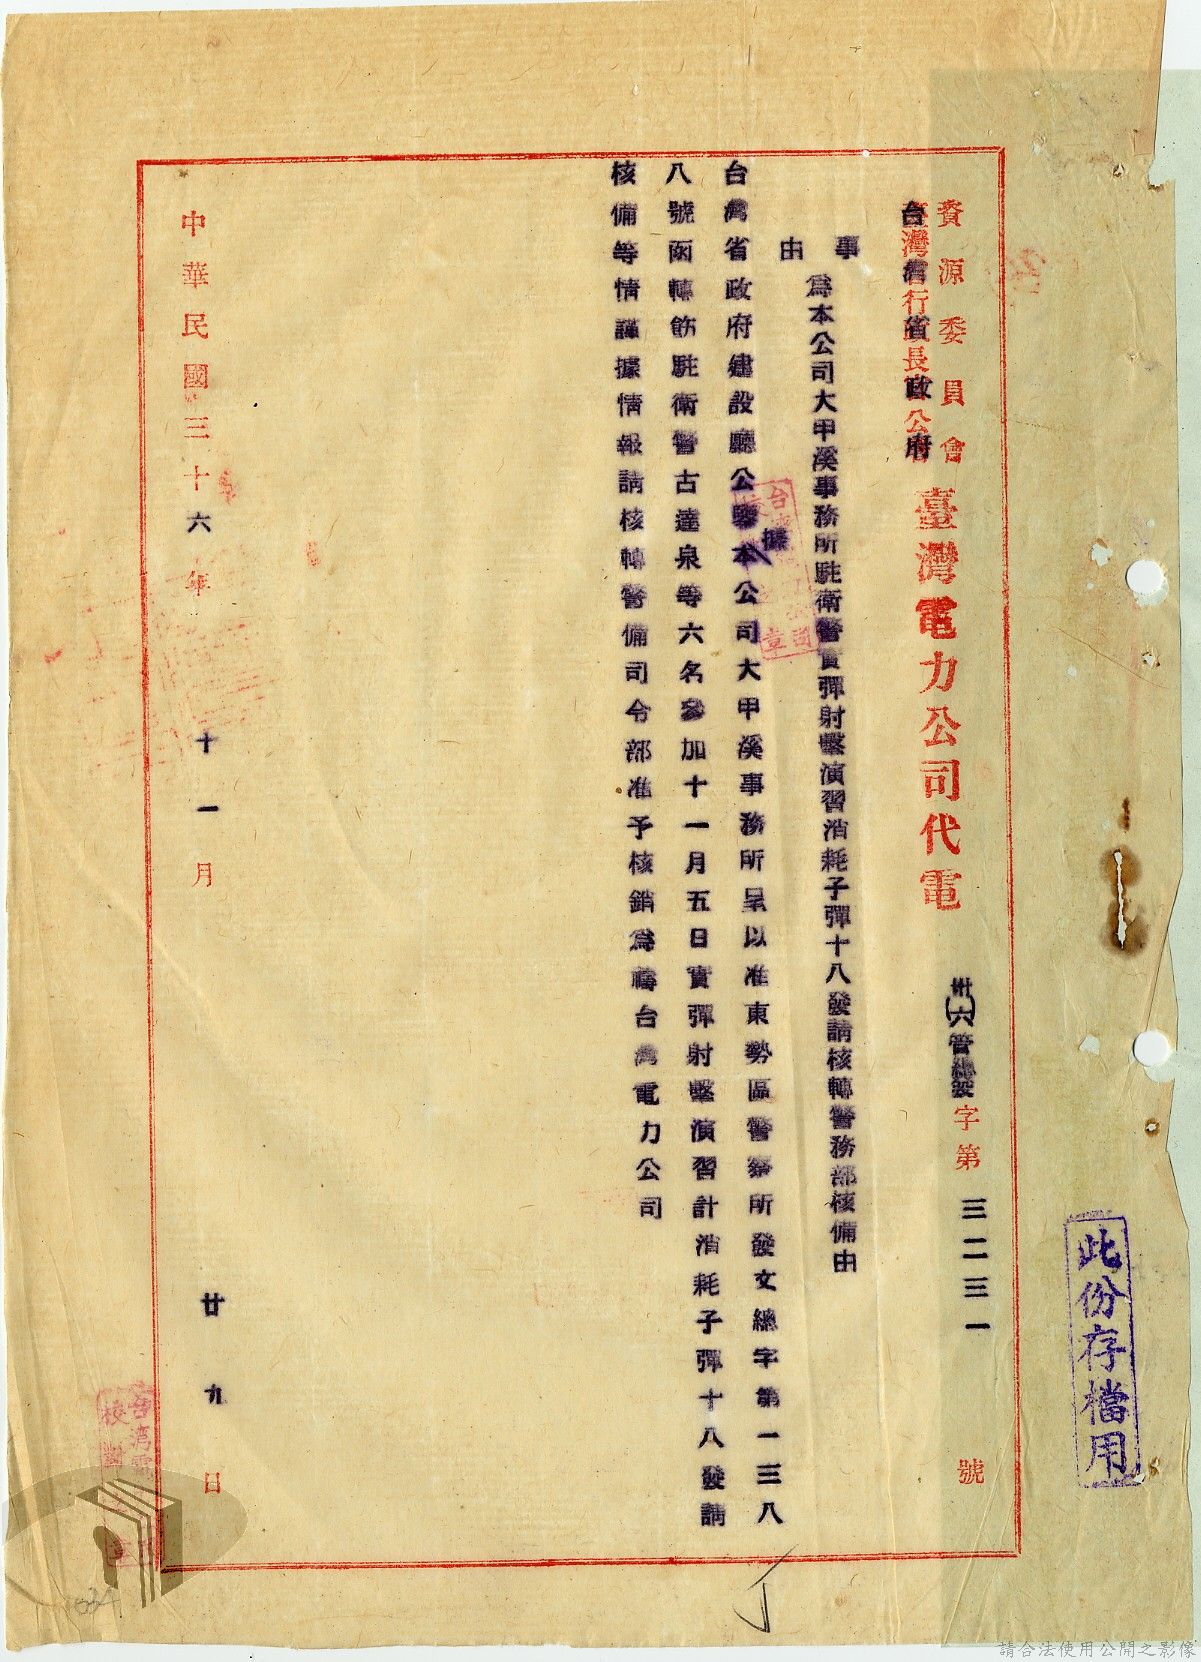 資源委員會
台灣省政府
臺灣電力公司代電
卅(六)管總發字第三二三一號
事由
為本公司大甲溪事務所駐衛警實彈射擊演習消耗子彈十八發請核轉警務部核備由
台灣省政府建設廳公鑒據本公司大甲溪事務所呈以准東勢區警察所發文總字第一三八
八號函轉飭駐衛警古達泉等六名參加十一月五日實彈射擊演習計消耗子彈十八發請
核備等情謹據情報請核轉警備司令部准予核銷為禱台灣電力公司
中華民國三十六年十一月廿九日
此份存檔用
請合法使用公開之影像